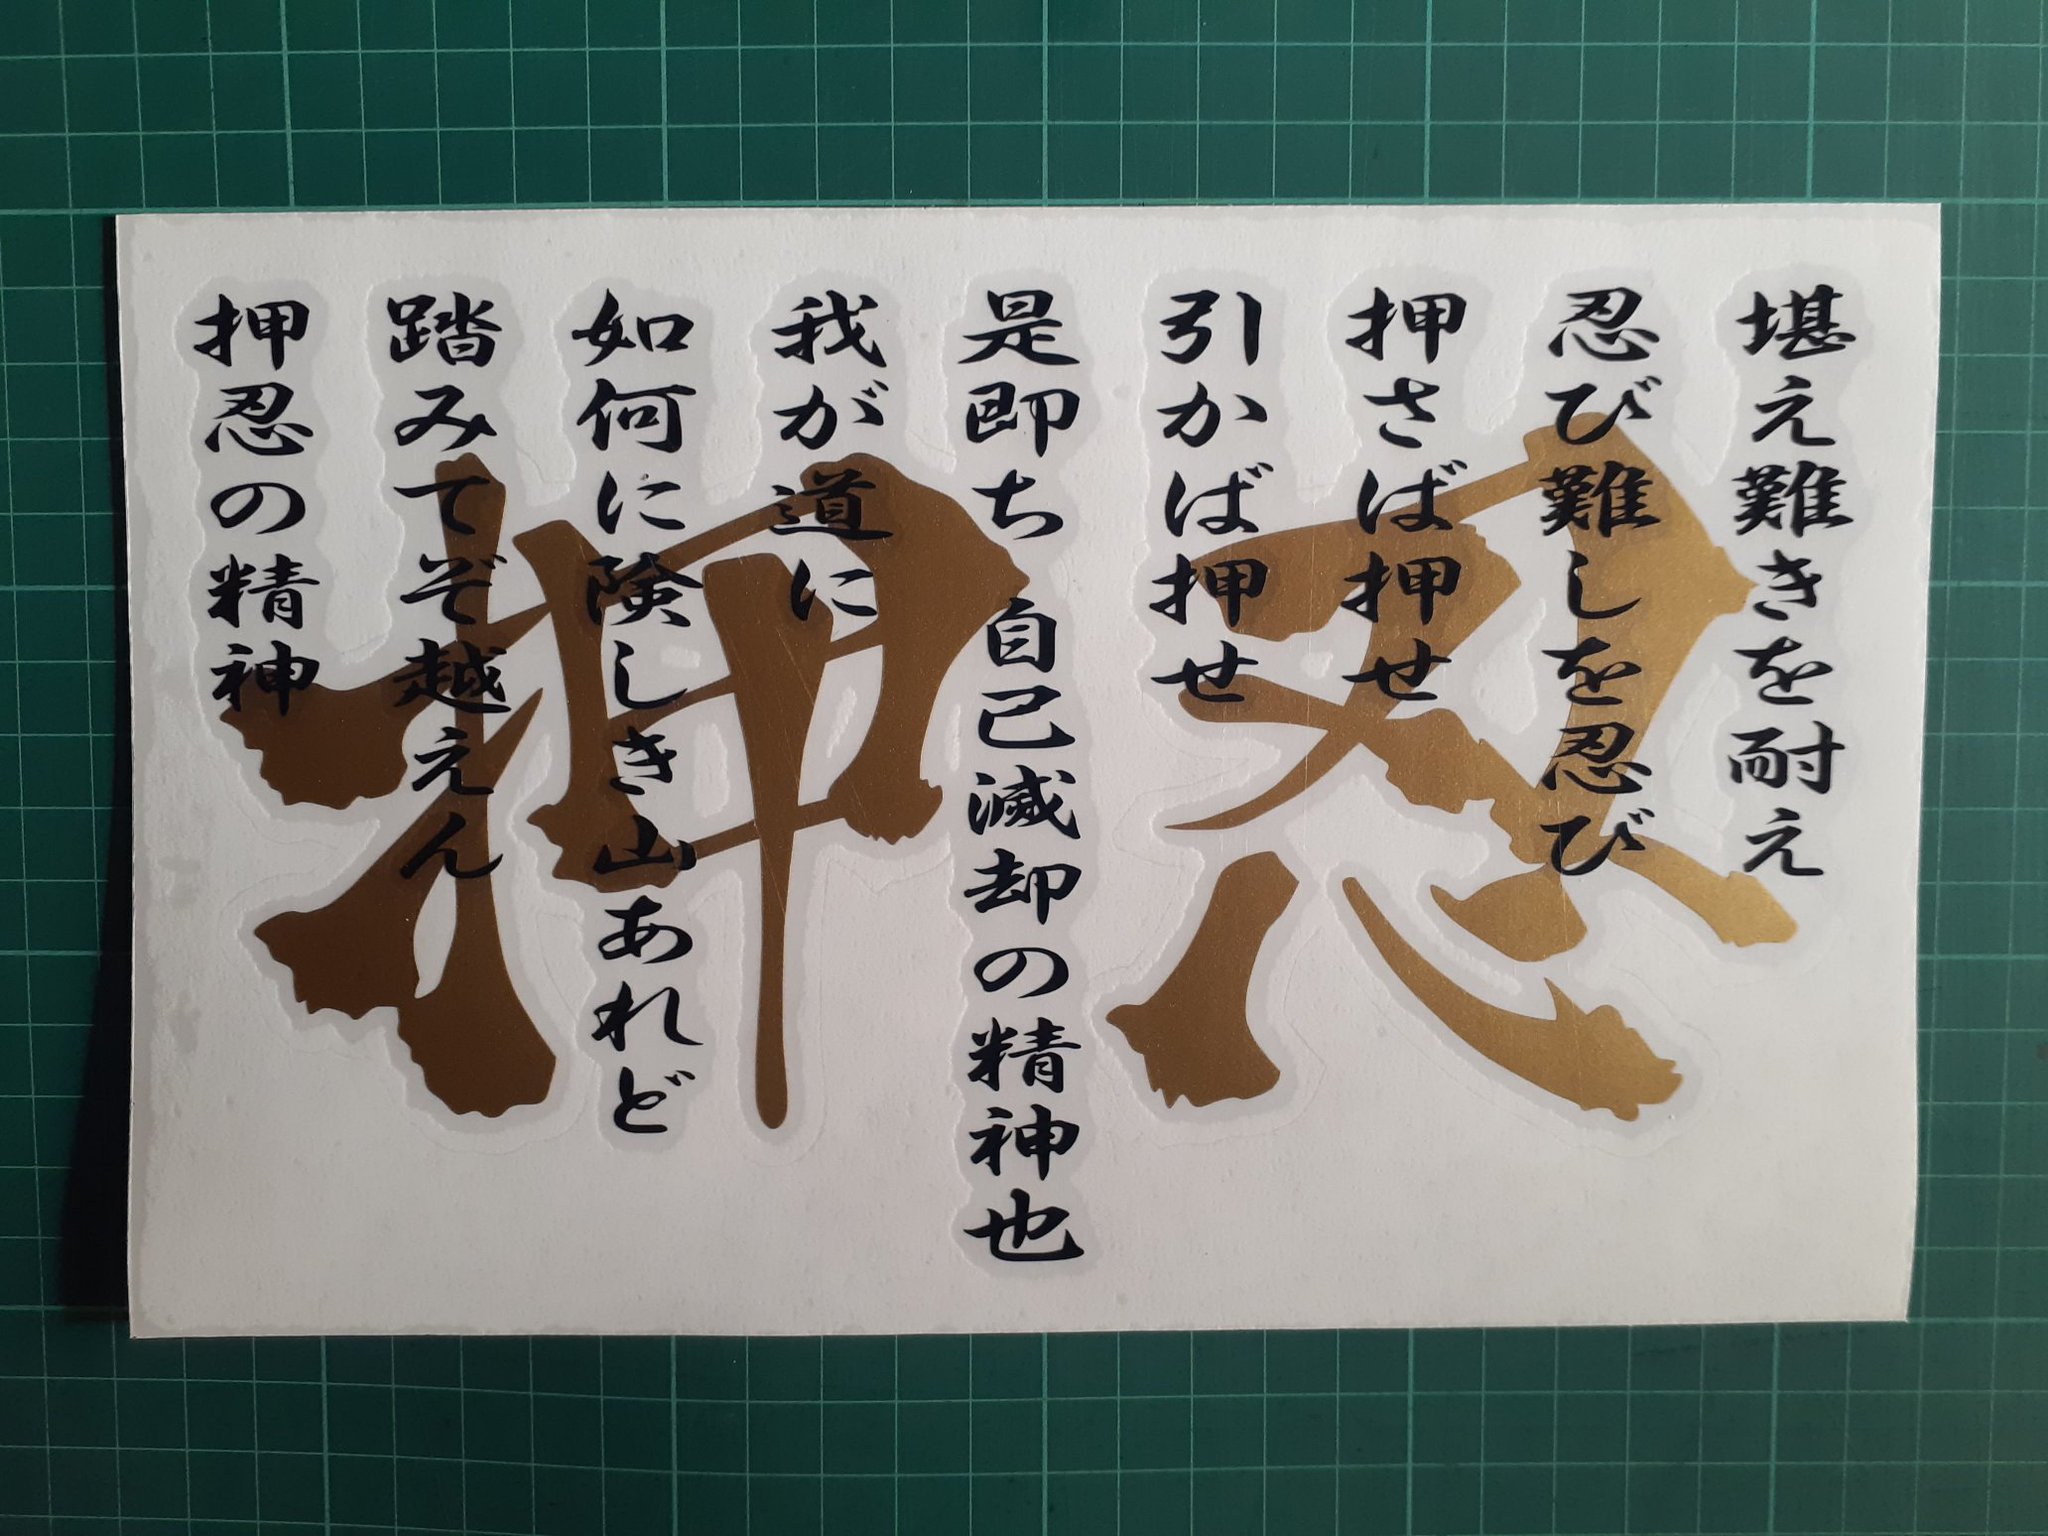 堪え難きを耐え
忍び難しを忍び
押さば押せ
引かば押せ
是即ち 自己滅却の精神也
我が道に
如何に険しき山あれど
踏みてぞ越えん
押忍の精神
押忍